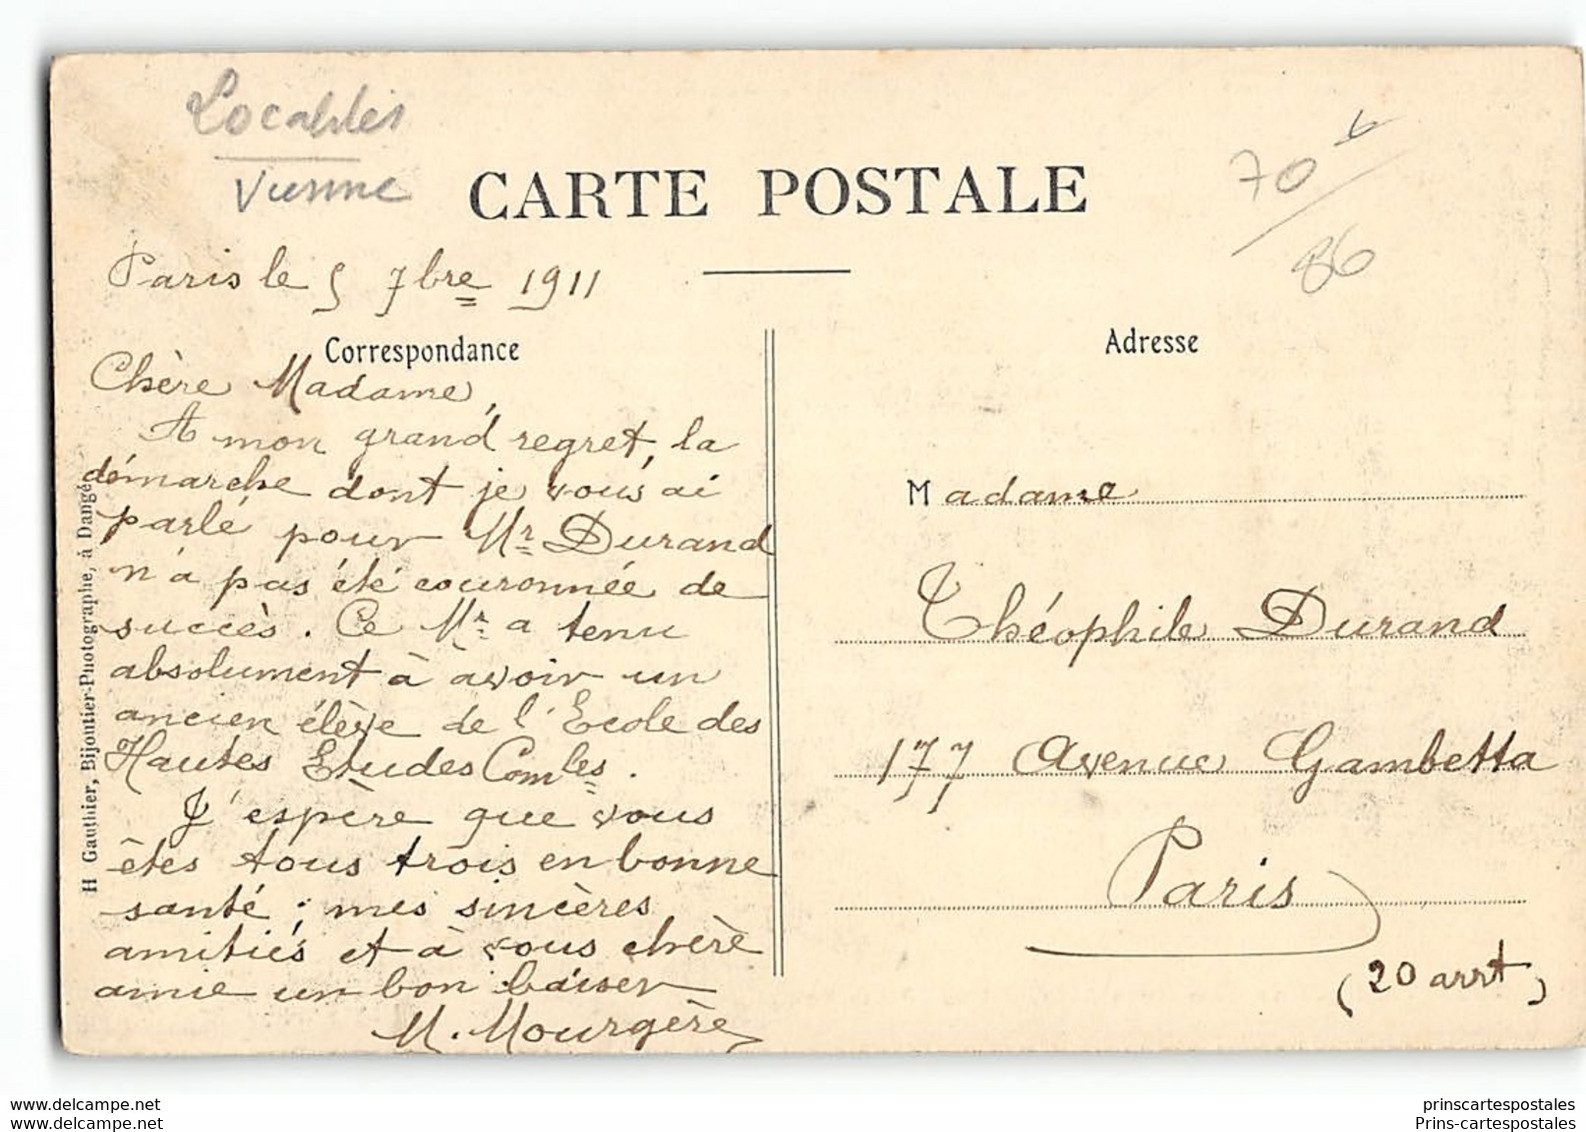 Locables
Vienne
CARTE POSTALE
70
86
Paris le 5 7bre 1911
Correspondance
Chère Madame,
A mon grand regret, la
démarche dont je vous ai
parlé pour Mr Durand
n'a pas été couronnée de
succès. Ce Mr a tenu
absolument à avoir un
ancien élève de l'Ecole des
Hautes Etudes Comles.
J'espère que vous
êtes tous trois en bonne
santé ; mes sincères
amitiés et à vous chère
amie un bon baiser
M. Mourgère
H Gauthier, Bijoutier-Photographe, à Dangé
Adresse
Madame
Théophile Durand
177 Avenue Gambetta
Paris
(20 arrt)
prinscartespostales
Prins-cartespostales
prinscartespostales
Prins-cartespostales